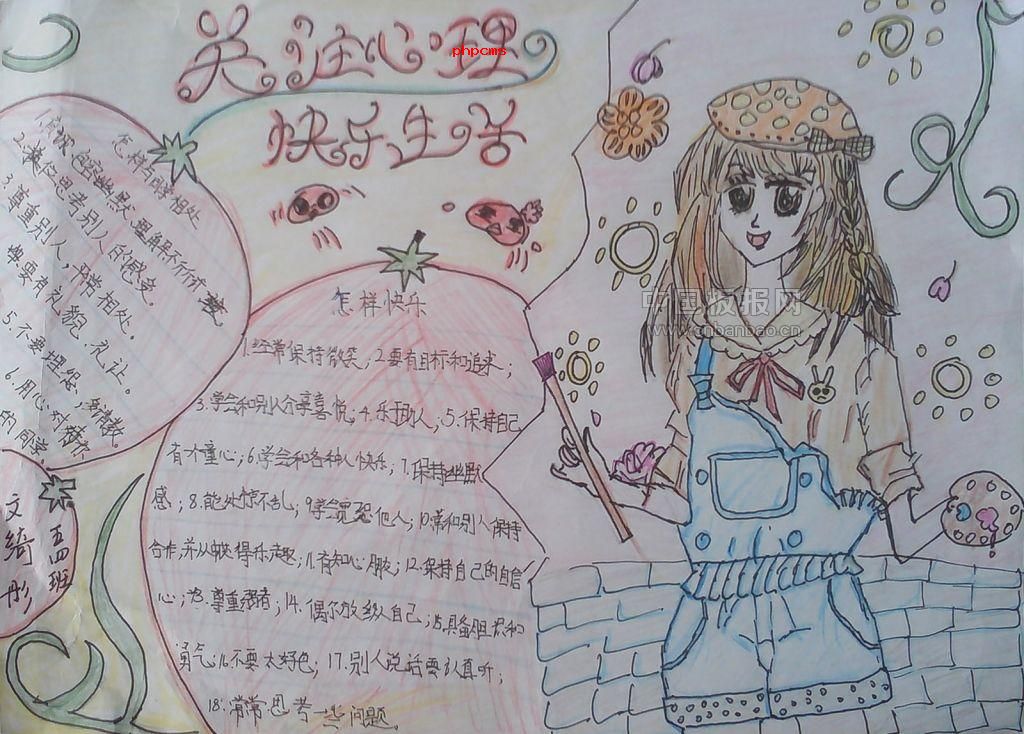 关注心理
phpcms
快乐生活
怎样与同学相处
2.换位思考别人的感受。
3.尊重别人,
要有礼貌、礼让。
5.不要埋怨,
6.用心对待
的同学
五四班
文绮彤
怎样快乐
1.经常保持微笑;2.要有目标和追求;
3.学会和别人分享喜悦;4.乐于助人;5.保持自己
有个童心;6.学会和各种人快乐;7.保持幽默
感;8.能处惊不乱;9.学会宽恕他人;10.常和别人保持
合作,并从中获得乐趣;11.有知心朋友;12.保持自己的自信
心;13.尊重弱者;14.偶尔放纵自己;15.具备胆识和
勇气;16.不要太好色;17.别人说话要认真听;
18.常常思考一些问题。
中国板报网
www.cnbanbao.cn